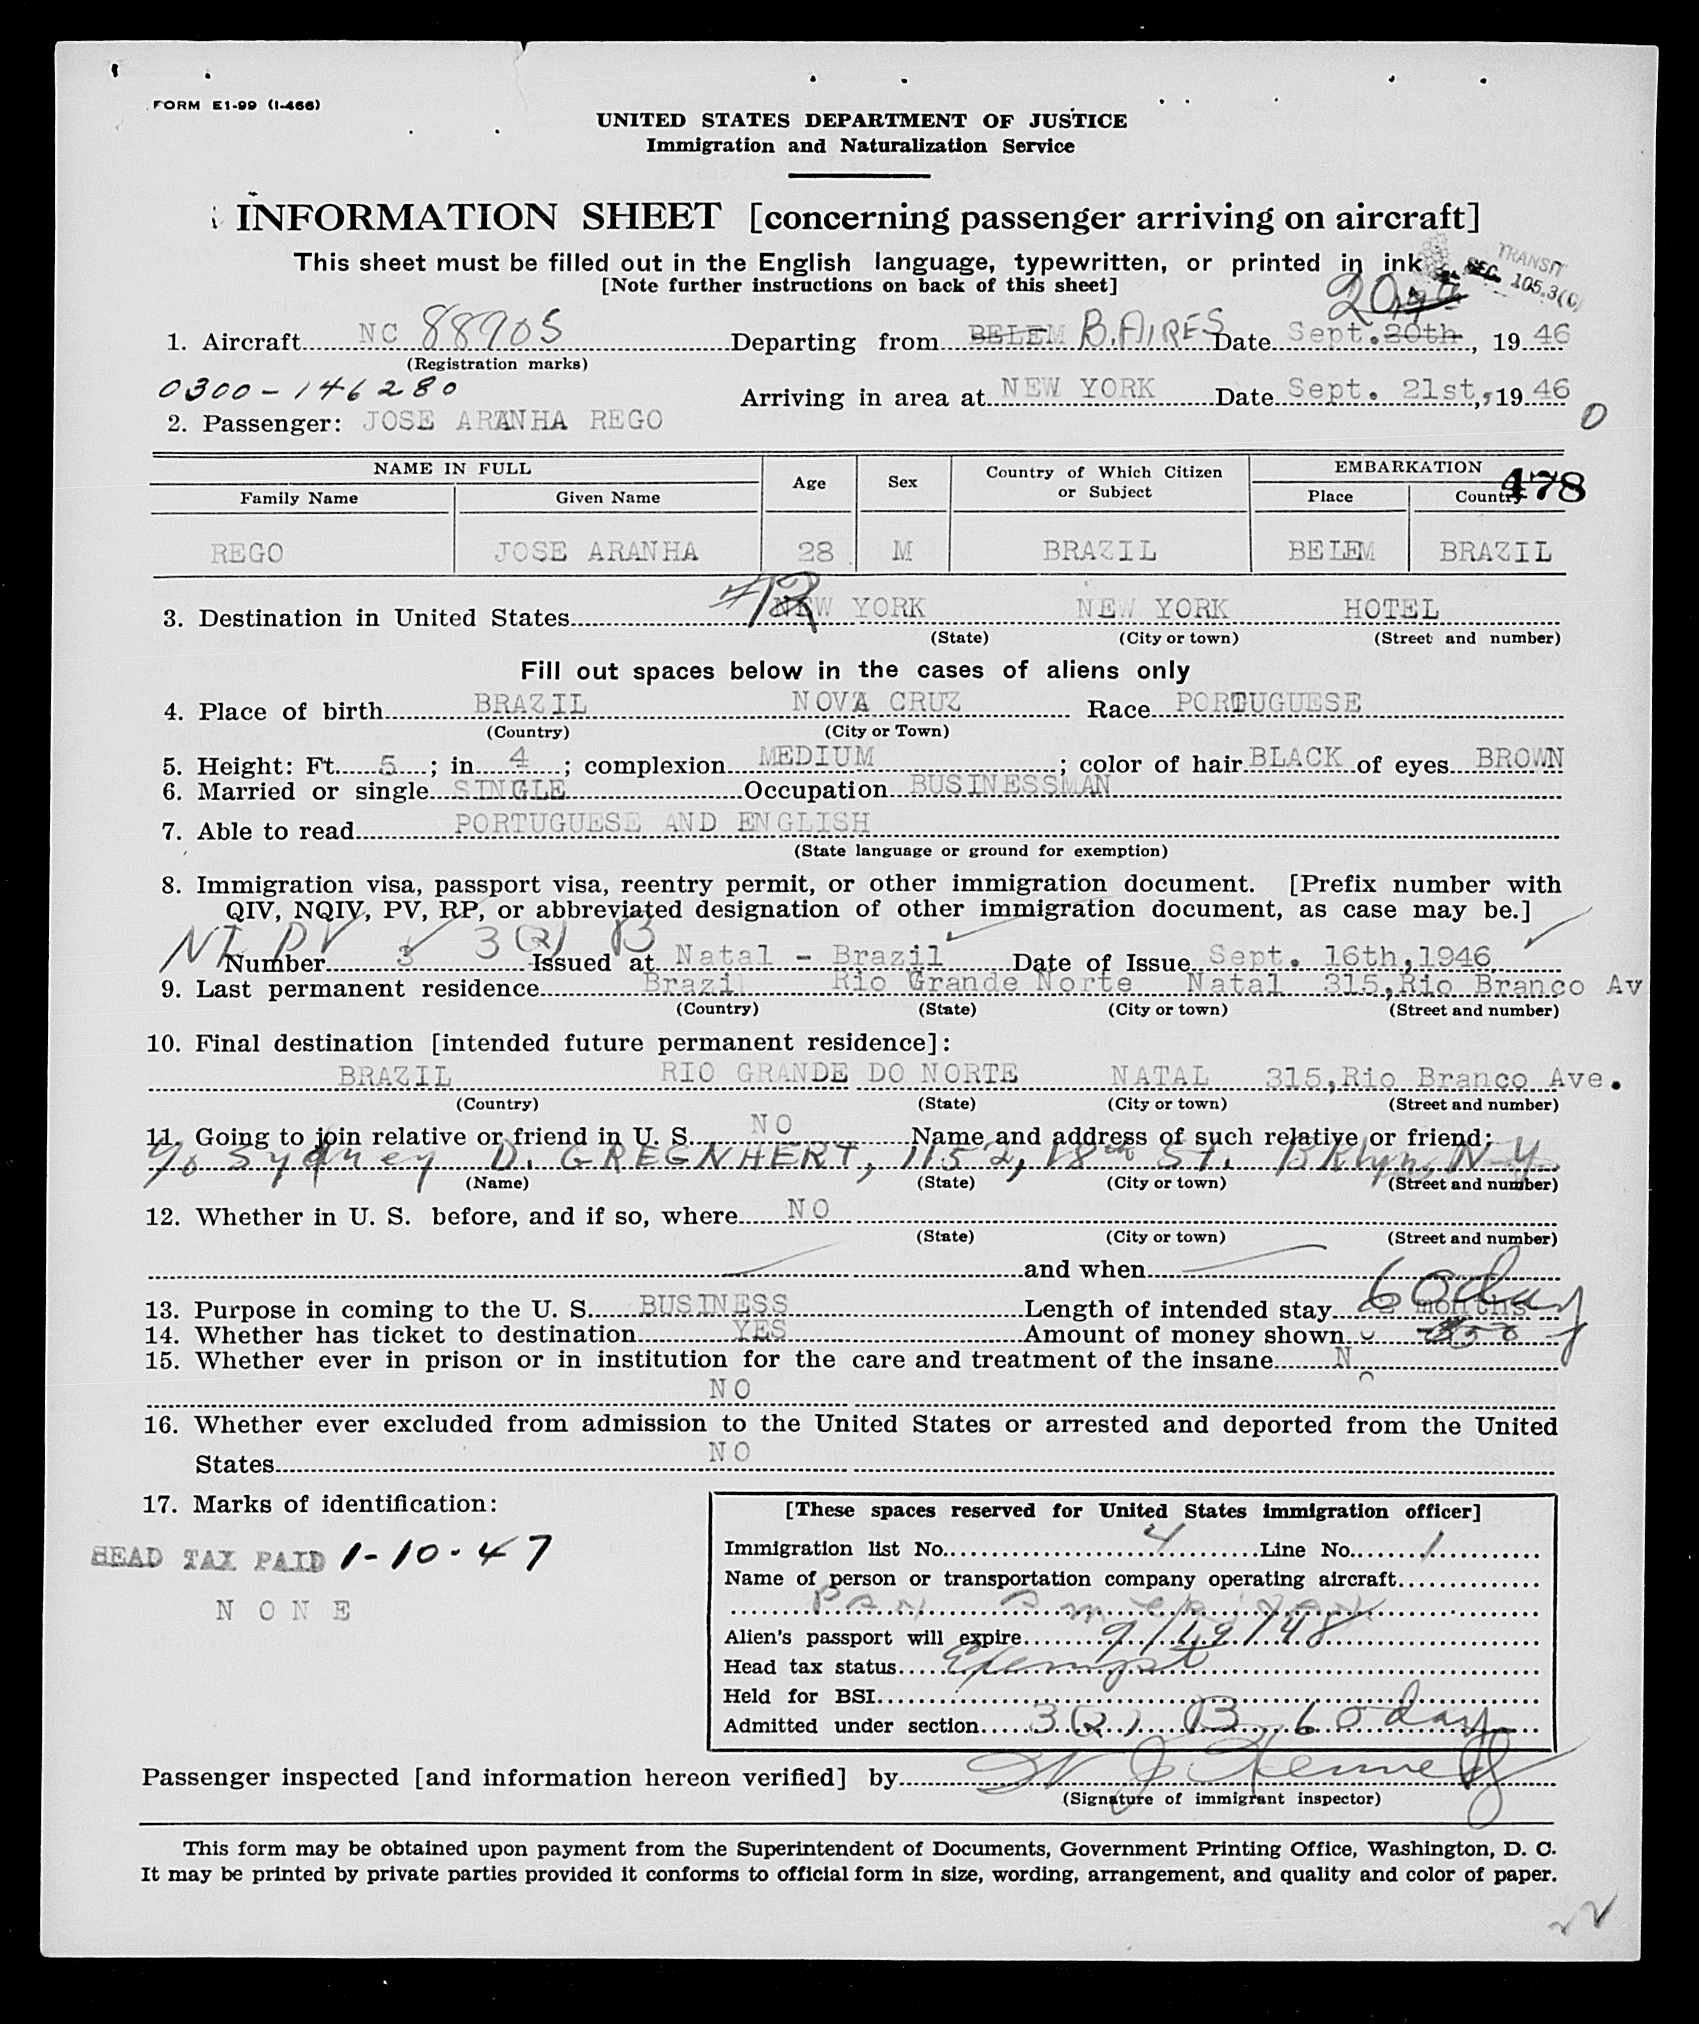 FORM E1-99 (I-466)
UNITED STATES DEPARTMENT OF JUSTICE
Immigration and Naturalization Service
INFORMATION SHEET [concerning passenger arriving on aircraft]
This sheet must be filled out in the English language, typewritten, or printed in ink
[Note further instructions on back of this sheet]
TRANSIT
SEC. 105.3(C)
20
1. Aircraft NC 88905 Departing from BELEM B.AIRES Date Sept. 20th, 19 46
(Registration marks)
0300-146280
Arriving in area at NEW YORK Date Sept. 21st, 19 46
2. Passenger: JOSE ARANHA REGO
0
NAME IN FULL Age Sex Country of Which Citizen or Subject EMBARKATION
478
Family Name Given Name Place Country
REGO JOSE ARANHA 28 M BRAZIL BELEM BRAZIL
3. Destination in United States NEW YORK NEW YORK HOTEL
(State) (City or town) (Street and number)
Fill out spaces below in the cases of aliens only
4. Place of birth BRAZIL NOVA CRUZ Race PORTUGUESE
(Country) (City or Town)
5. Height: Ft. 5; in 4; complexion MEDIUM; color of hair BLACK of eyes BROWN
6. Married or single SINGLE Occupation BUSINESSMAN
7. Able to read PORTUGUESE AND ENGLISH
(State language or ground for exemption)
8. Immigration visa, passport visa, reentry permit, or other immigration document. [Prefix number with
QIV, NQIV, PV, RP, or abbreviated designation of other immigration document, as case may be.]
PV 3(2) B
Number 3 Issued at Natal - Brazil Date of Issue Sept. 16th, 1946
9. Last permanent residence Brazil Rio Grande Norte Natal 315, Rio Branco Av
(Country) (State) (City or town) (Street and number)
10. Final destination [intended future permanent residence]:
BRAZIL RIO GRANDE DO NORTE NATAL 315, Rio Branco Ave.
(Country) (State) (City or town) (Street and number)
11. Going to join relative or friend in U. S. NO Name and address of such relative or friend:
c/o Sydney D. GREGNHERT, 1152, 18th St. BKlyn, N.Y.
(Name) (State) (City or town) (Street and number)
12. Whether in U. S. before, and if so, where NO
(State) (City or town) (Street and number)
and when
60 day
13. Purpose in coming to the U. S. BUSINESS Length of intended stay months
14. Whether has ticket to destination YES Amount of money shown
15. Whether ever in prison or in institution for the care and treatment of the insane No
NO
16. Whether ever excluded from admission to the United States or arrested and deported from the United
States NO
17. Marks of identification:
HEAD TAX PAID 1-10-47
NONE
[These spaces reserved for United States immigration officer]
Immigration list No. 4 Line No. 1
Name of person or transportation company operating aircraft
PAN AMERICAN
Alien's passport will expire 9/12/48
Head tax status Exempt
Held for BSI
Admitted under section 3(2) B 60 day
Passenger inspected [and information hereon verified] by W J Kennedy
(Signature of immigrant inspector)
This form may be obtained upon payment from the Superintendent of Documents, Government Printing Office, Washington, D. C.
It may be printed by private parties provided it conforms to official form in size, wording, arrangement, and quality and color of paper.